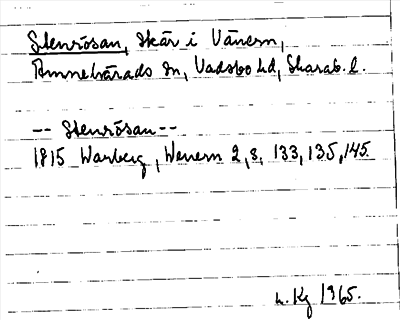 Stenrösan, skär i Vänern,
Amnehärads sn, Vadsbo hd, Skarab. l.
-- Stenrösan --
1815 Warberg, Wenern 2, s, 133, 135, 145.
L. Kg 1965.